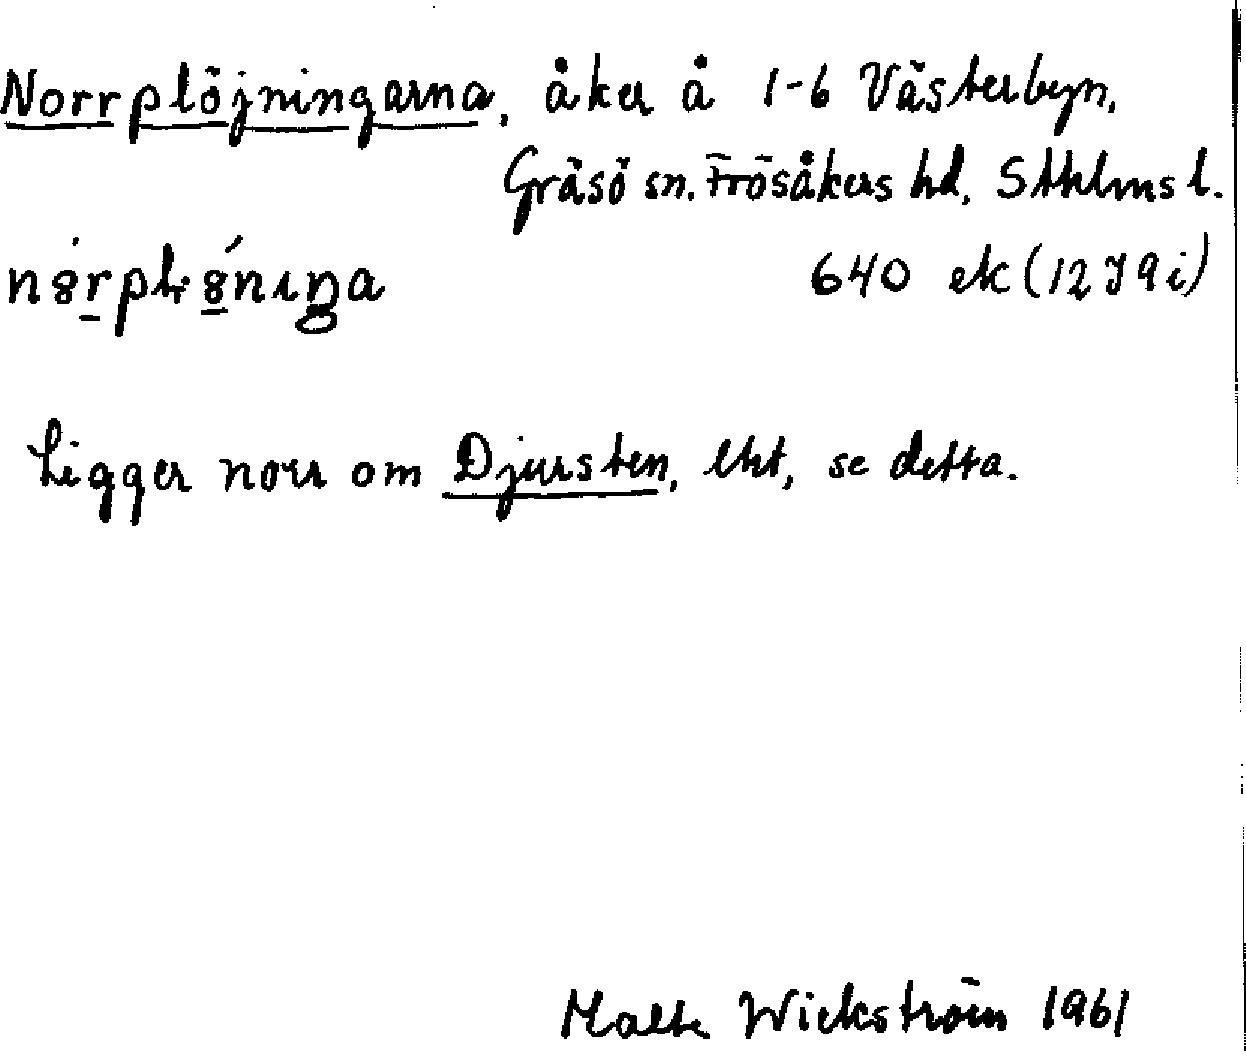 Norrplöjningarna, åker å 1-6 Västerbyn,
Gräsö sn. Frösåkers hd, Sthlms l.
640 ek (12I9i)
Ligger norr om Djursten, lht, se detta.
Malte Wickström 1961